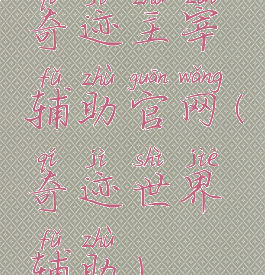 qí jì zhǔ zǎi
奇迹主宰
fǔ zhù guān wǎng
辅助官网(
qí jì shì jiè
奇迹世界
fǔ zhù
辅助)